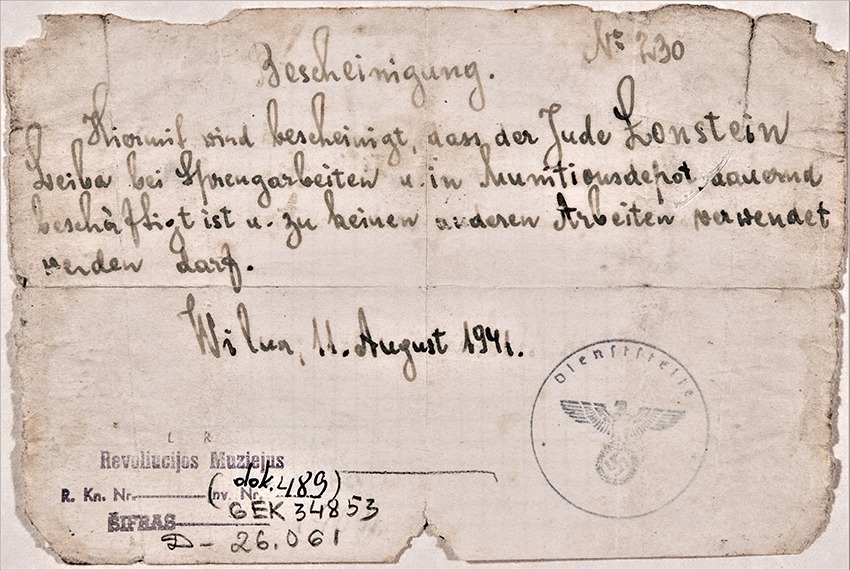 Bescheinigung.
№ 230
Hiermit wird bescheinigt, dass der Jude Zonstein
Leiba bei Sprengarbeiten u. in Munitionsdepot dauernd
beschäftigt ist u. zu keinen anderen Arbeiten verwendet
werden darf.
Wilna, 11. August 1941.
Dienststelle
L R
Revoliucijos Muziejus
R. Kn. Nr. (nv. Nr. dok. 489)
GEK 34853
ŠIFRAS
D- 26.061